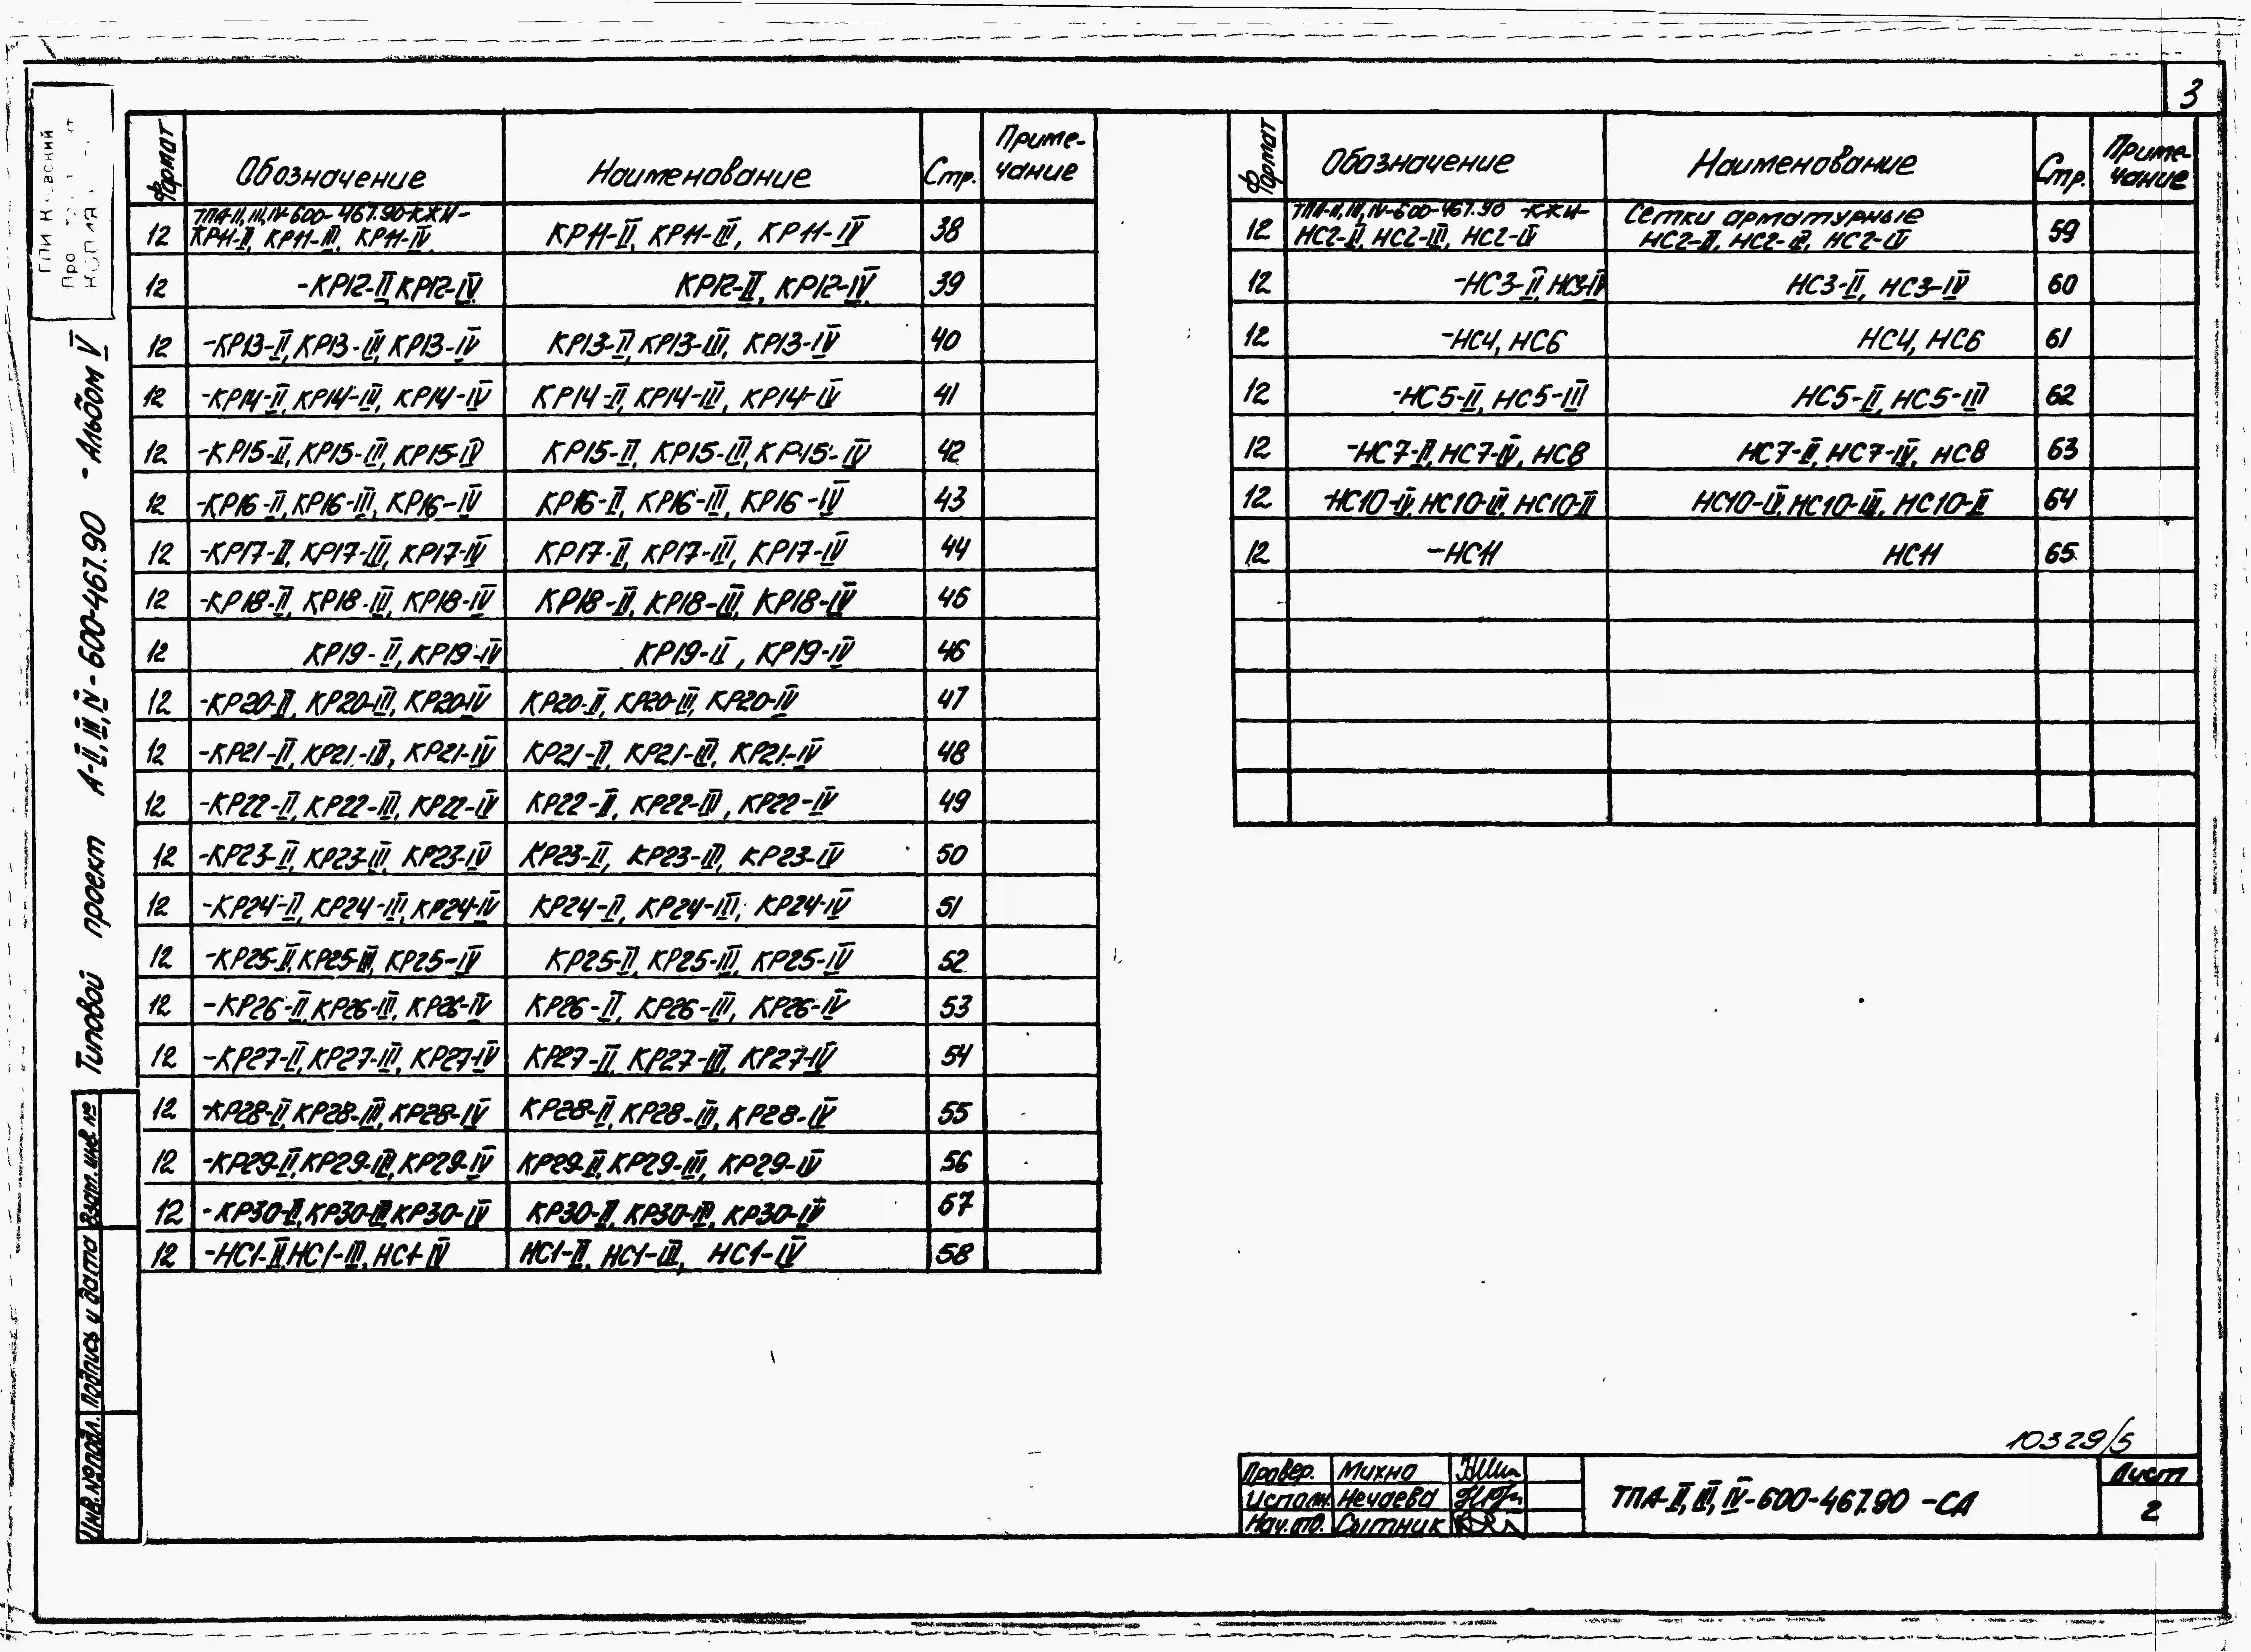 3
Формат Обозначение Наименование Стр. Приме-
чание
ТПА-II, III, IV-600-467.90-КЖИ-
12 КР11-II, КР11-III, КР11-IV КР11-II, КР11-III, КР11-IV 38
12 -КР12-II КР12-IV КР12-II, КР12-IV 39
12 -КР13-II, КР13-III, КР13-IV КР13-II, КР13-III, КР13-IV 40
12 -КР14-II, КР14-III, КР14-IV КР14-II, КР14-III, КР14-IV 41
12 -КР15-II, КР15-III, КР15-IV КР15-II, КР15-III, КР15-IV 42
12 -КР16-II, КР16-III, КР16-IV КР16-II, КР16-III, КР16-IV 43
12 -КР17-II, КР17-III, КР17-IV КР17-II, КР17-III, КР17-IV 44
12 -КР18-II, КР18-III, КР18-IV КР18-II, КР18-III, КР18-IV 45
12 КР19-II, КР19-IV КР19-II, КР19-IV 46
12 -КР20-II, КР20-III, КР20-IV КР20-II, КР20-III, КР20-IV 47
12 -КР21-II, КР21-III, КР21-IV КР21-II, КР21-III, КР21-IV 48
12 -КР22-II, КР22-III, КР22-IV КР22-II, КР22-III, КР22-IV 49
12 -КР23-II, КР23-III, КР23-IV КР23-II, КР23-III, КР23-IV 50
12 -КР24-II, КР24-III, КР24-IV КР24-II, КР24-III, КР24-IV 51
12 -КР25-II, КР25-III, КР25-IV КР25-II, КР25-III, КР25-IV 52
12 -КР26-II, КР26-III, КР26-IV КР26-II, КР26-III, КР26-IV 53
12 -КР27-II, КР27-III, КР27-IV КР27-II, КР27-III, КР27-IV 54
12 -КР28-II, КР28-III, КР28-IV КР28-II, КР28-III, КР28-IV 55
12 -КР29-II, КР29-III, КР29-IV КР29-II, КР29-III, КР29-IV 56
12 -КР30-II, КР30-III, КР30-IV КР30-II, КР30-III, КР30-IV 57
12 -НС1-II, НС1-III, НС1-IV НС1-II, НС1-III, НС1-IV 58
Формат Обозначение Наименование Стр. Приме-
чание
ТПА-II, III, IV-600-467.90 -КЖИ- Сетки арматурные
12 НС2-II, НС2-III, НС2-IV НС2-II, НС2-III, НС2-IV 59
12 -НС3-II, НС3-IV НС3-II, НС3-IV 60
12 -НС4, НС6 НС4, НС6 61
12 -НС5-II, НС5-III НС5-II, НС5-III 62
12 -НС7-II, НС7-IV, НС8 НС7-II, НС7-IV, НС8 63
12 -НС10-IV, НС10-III, НС10-II НС10-IV, НС10-III, НС10-II 64
12 -НС11 НС11 65
Типовой проект А-II, III, IV-600-467.90 - Альбом V
Взам. инв. №
Подпись и дата
Инв. № подл.
10329/5
Провер. Михно
Исполн. Нечаева
Нач. отд. Сытник
ТПА-II, III, IV-600-467.90 -СА
Лист
2